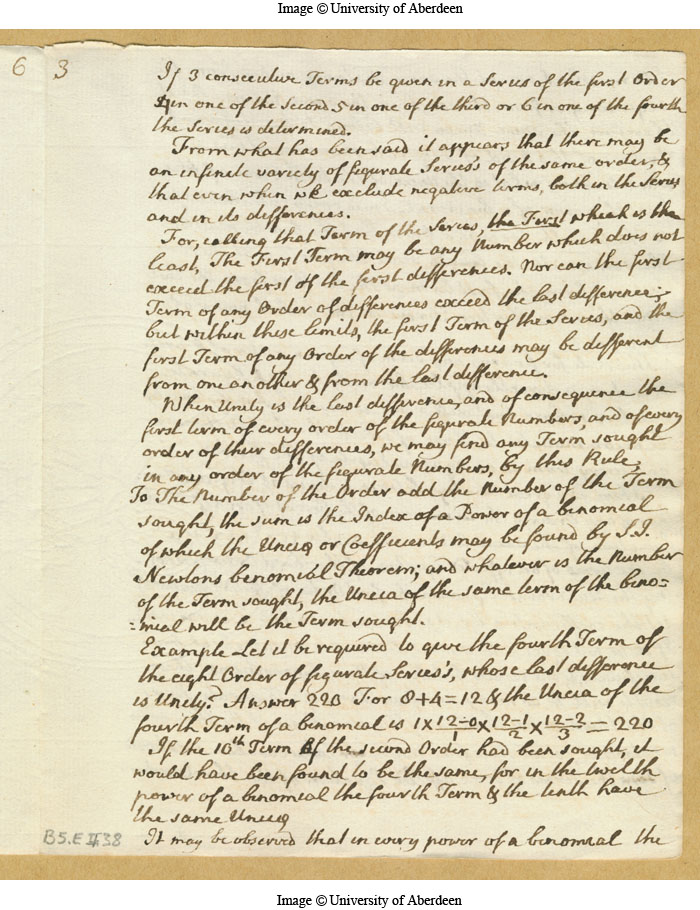 Image © University of Aberdeen
6 3
If 3 consecutive Terms be given in a Series of the first Order
4 in one of the second, 5 in one of the third or 6 in one of the fourth
the Series is determined.
From what has been said it appears that there may be
an infinite variety of figurate Series's of the same order, &
that even when we exclude negative terms, both in the Series
and in its differences.
For, calling that Term of the Series, the First which is the
least, The First Term may be any Number which does not
exceed the first of the first differences. Nor can the first
Term of any Order of differences exceed the last difference;
but within these limits, the first Term of the Series, and the
first Term of any Order of the differences may be different
from one another & from the last difference.
When Unity is the last difference, and of consequence the
first term of every order of the figurate Numbers, and of every
order of their differences, we may find any Term sought
in any order of the figurate Numbers, by this Rule;
To The Number of the Order add the Number of the Term
sought, the sum is the Index of a Power of a binomial
of which the Unciæ or Coefficients may be found by S.I.
Newtons benomial Theorem; and whatever is the Number
of the Term sought, the Uncia of the same term of the bino=
=mial will be the Term sought.
Example Let it be required to give the fourth Term of
the eight Order of figurate Series's, whose last difference
is Unity? Answer 220 For 8+4=12 & the Uncia of the
fourth Term of a binomial is 1×12-0/1×12-1/2×12-2/3=220
If the 10th Term of the second Order had been sought, it
would have been found to be the same, for in the twelth
power of a binomial the fourth Term & the tenth have
the same Unciæ
It may be observed that in every power of a benomial the
B5.E II 38
Image © University of Aberdeen